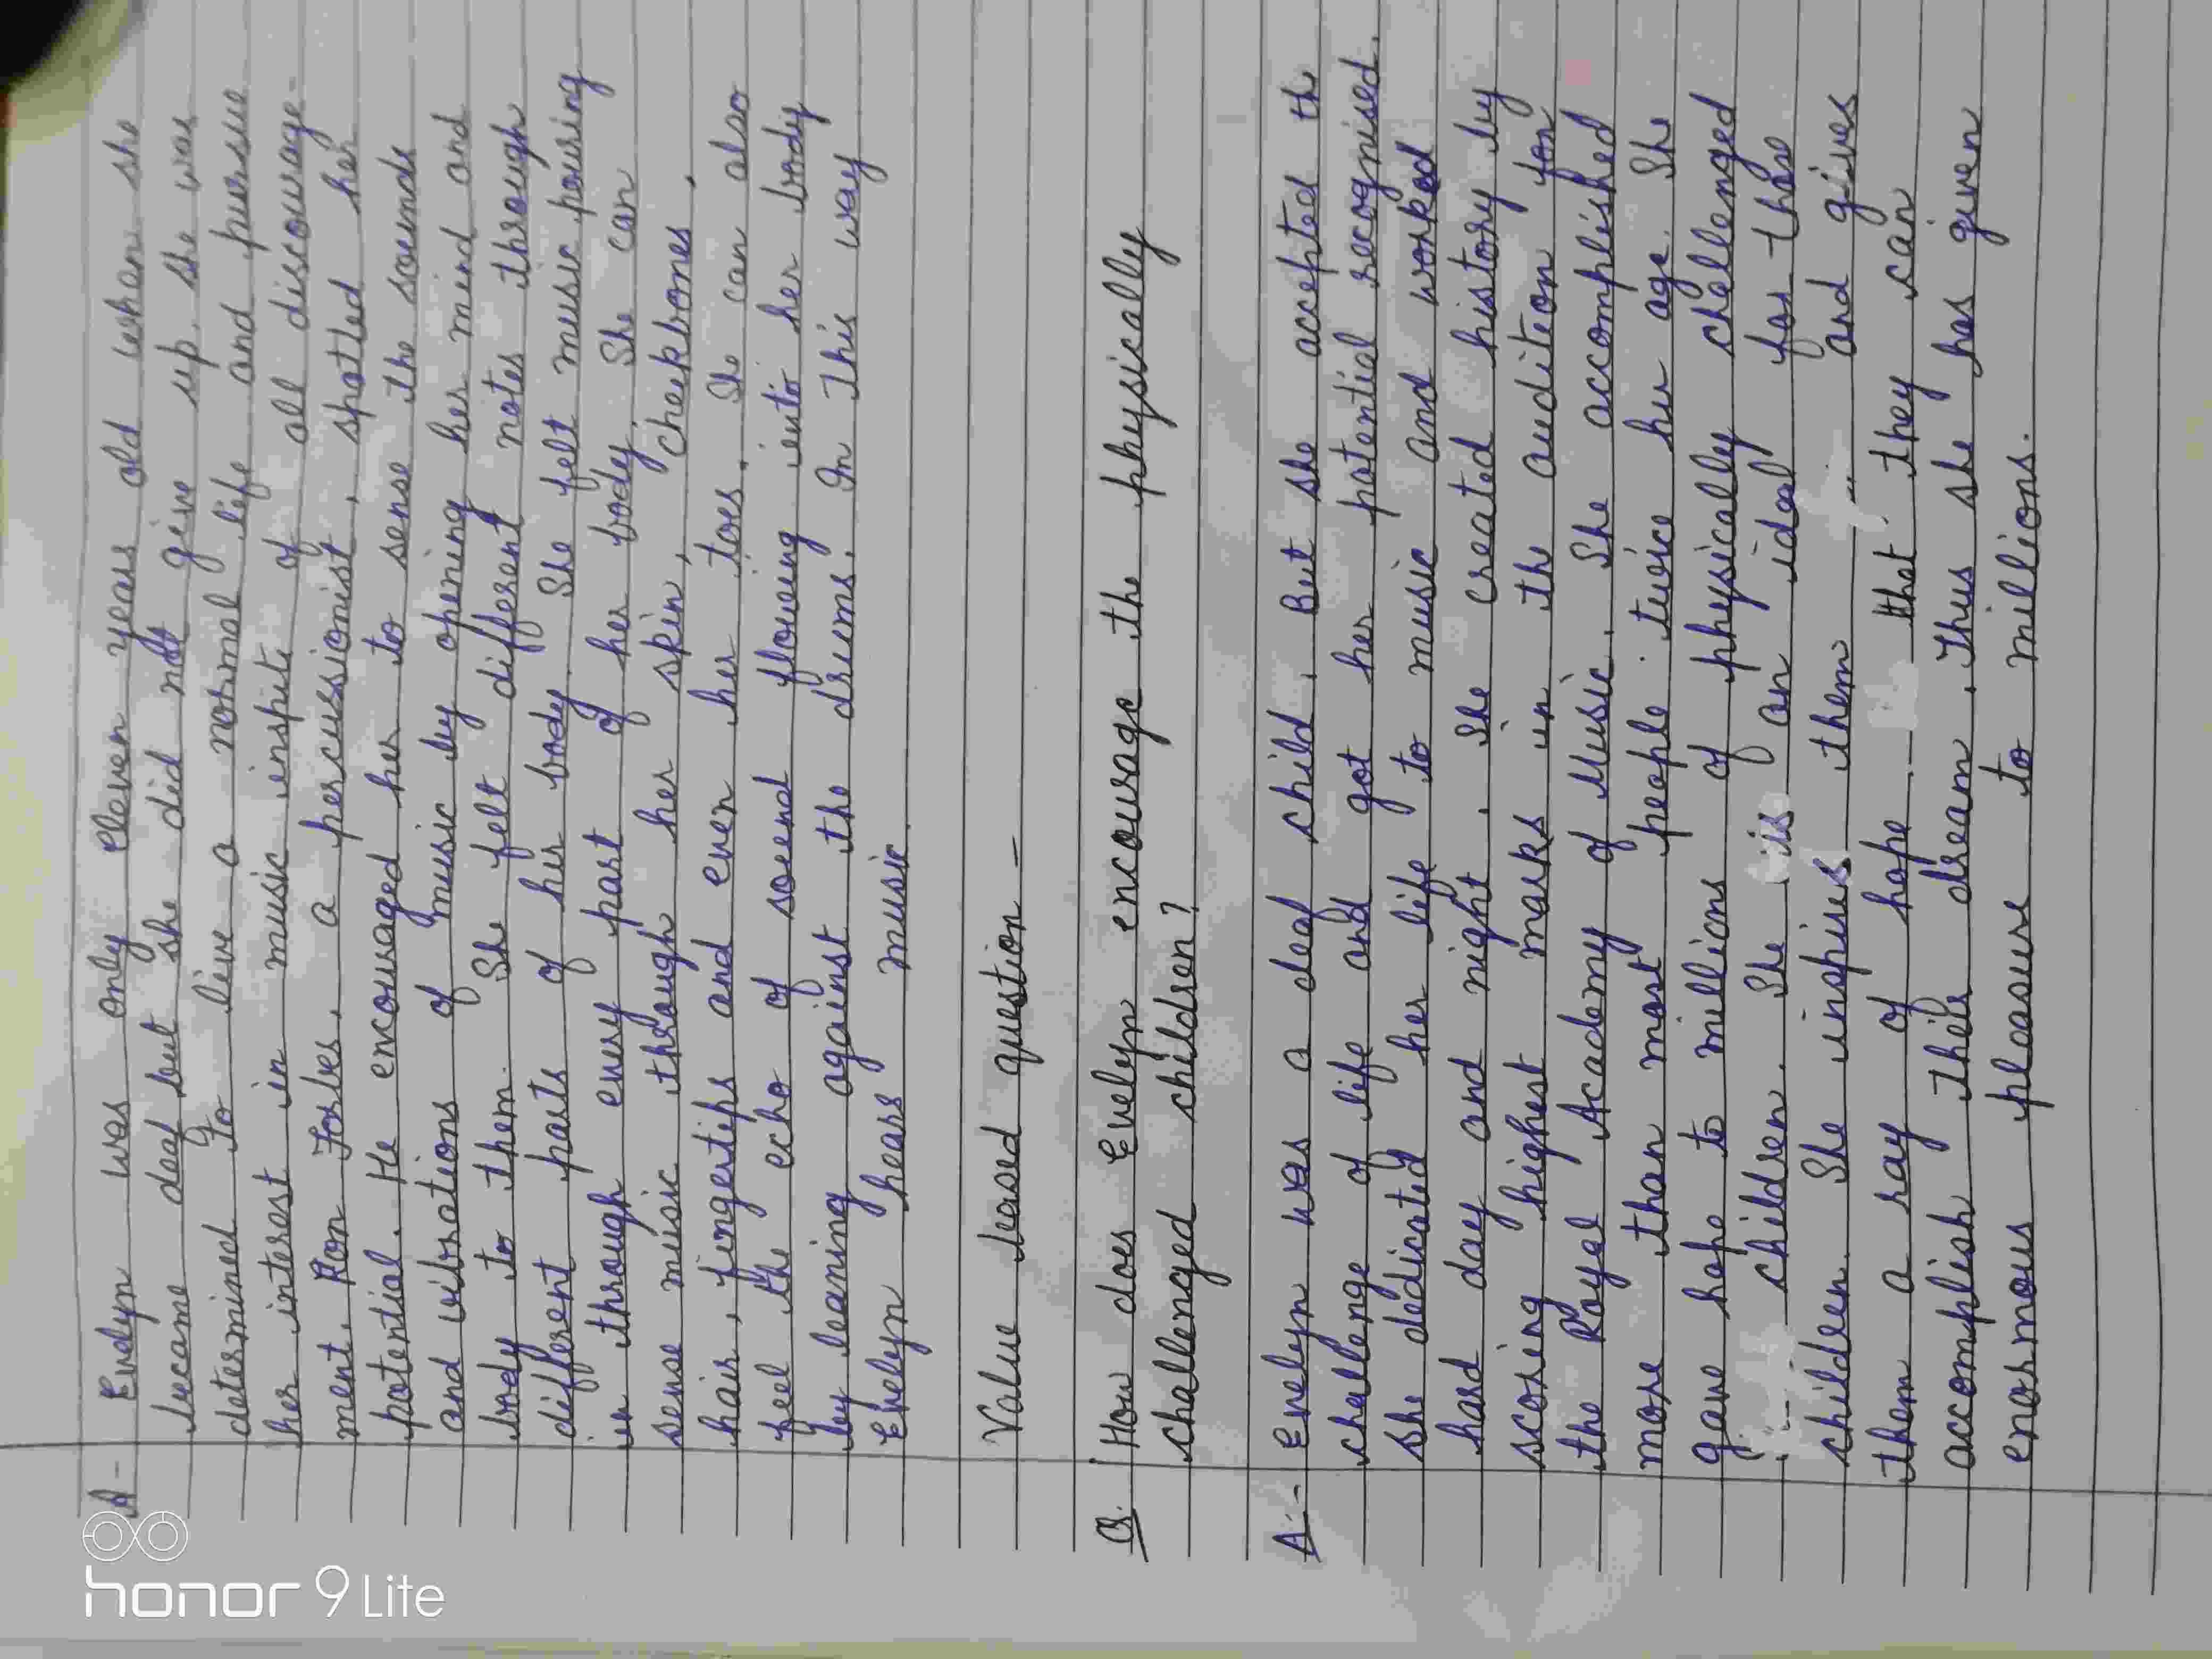 A- Evelyn was only eleven years old when she
became deaf but she did not give up. She was
determined to live a normal life and pursue
her interest in music inspite of all discourage-
ment. Ron Forbes, a percussionist, spotted her
potential. He encouraged her to sense the sounds
and vibrations of music by opening her mind and
body to them. She felt different notes through
different parts of her body. She felt music pouring
in through every part of her body. She can
sense music through her skin, cheekbones,
hair, fingertips and even her toes. She can also
feel the echo of sound flowing into her body
by leaning against the drums. In this way
Evelyn hears music.
Value based question -
Q. How does Evelyn encourage the physically
challenged children?
A:- Evelyn was a deaf child. But she accepted th
challenge of life and got her potential recognised.
She dedicated her life to music and worked
hard day and night. She created history by
scoring highest marks in the audition for
the Royal Academy of Music. She accomplished
more than most people twice her age. She
gave hope to millions of physically challenged
children. She is an ideal for those
children. She inspires them and gives
them a ray of hope that they can
accomplish their dream. Thus she has given
enormous pleasure to millions.
honor 9 Lite